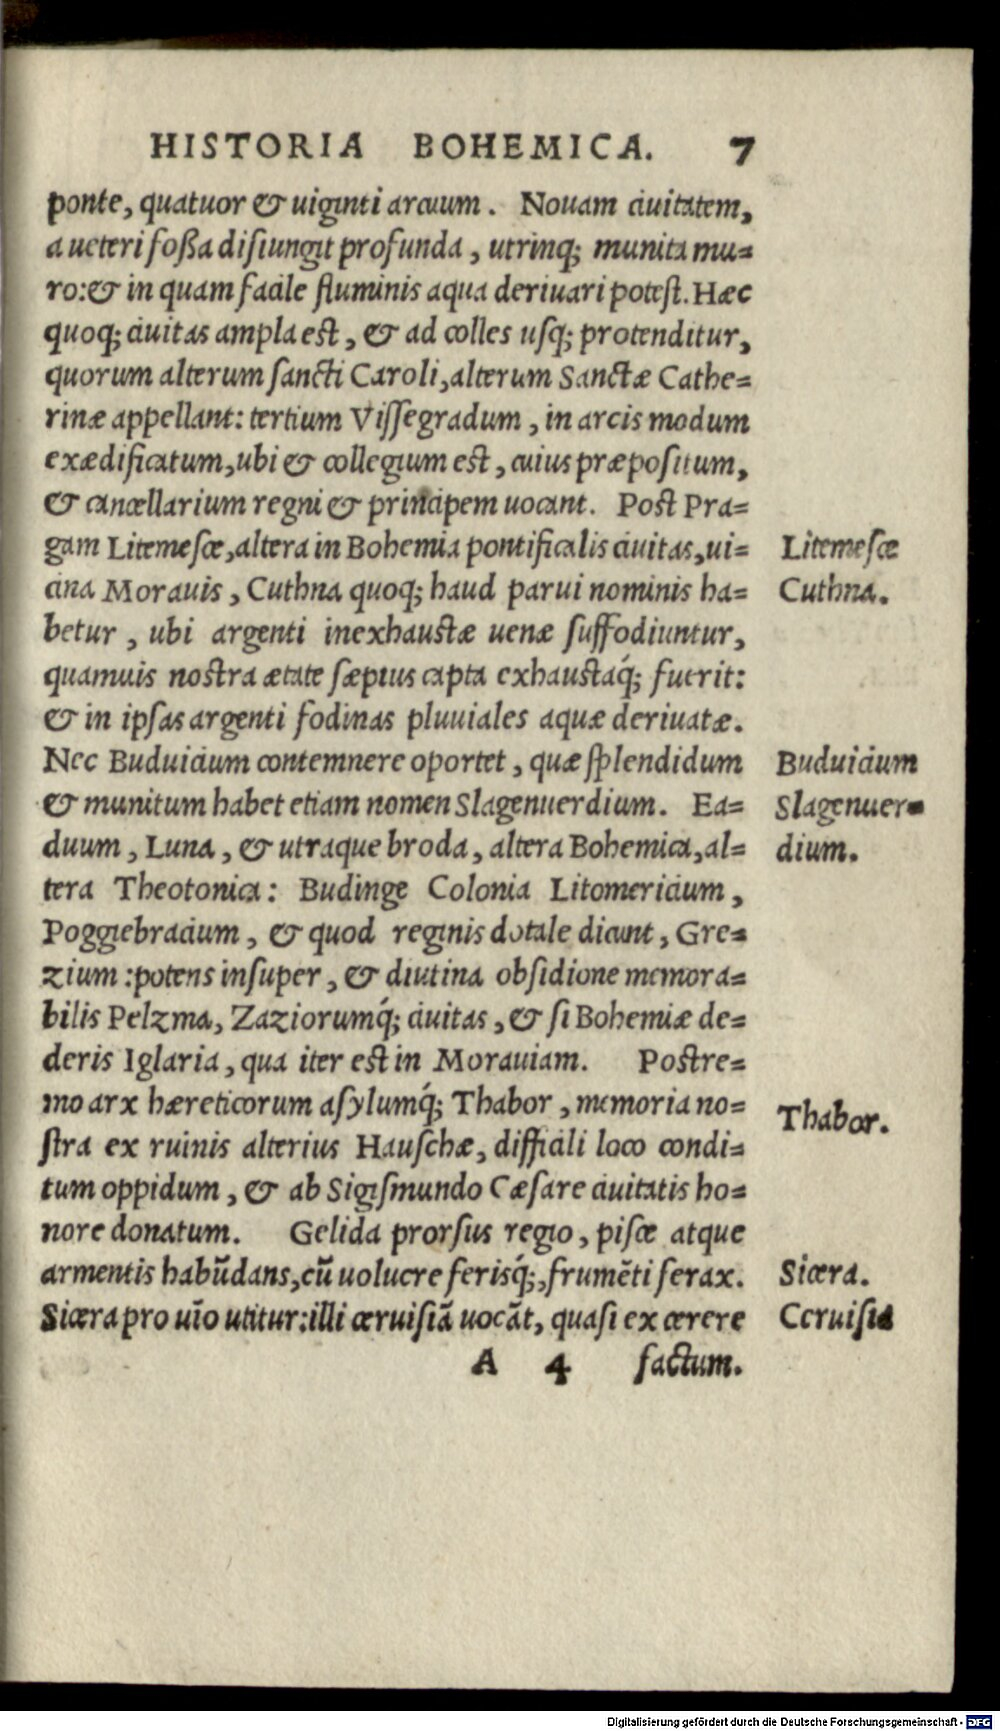 HISTORIA BOHEMICA. 7
ponte, quatuor & uiginti arcuum. Nouam ciuitatem,
a ueteri foßa disiungit profunda, utrinq; munita mu=
ro: & in quam facile fluminis aqua deriuari potest. Hæc
quoq; ciuitas ampla est, & ad colles usq; protenditur,
quorum alterum sancti Caroli, alterum Sanctæ Cathe=
rinæ appellant: tertium Vissegradum, in arcis modum
exædificatum, ubi & collegium est, cuius præpositum,
& cancellarium regni & principem uocant. Post Pra=
gam Litemesce, altera in Bohemia pontificalis ciuitas, ui=
Litemesce
cina Morauis, Cuthna quoq; haud parui nominis ha=
Cuthna.
betur, ubi argenti inexhaustæ uenæ suffodiuntur,
quamuis nostra ætate sæpius capta exhaustaq́; fuerit:
& in ipsas argenti fodinas pluuiales aquæ deriuatæ.
Nec Buduicium contemnere oportet, quæ splendidum
Buduicium
& munitum habet etiam nomen Slagenuerdium. Ea=
Slagenuer=
duum, Luna, & utraque broda, altera Bohemica, al=
dium.
tera Theotonica: Budinge Colonia Litomericium,
Poggiebracium, & quod reginis dotale dicunt, Gre=
zium: potens insuper, & diutina obsidione memora=
bilis Pelzma, Zaziorumq́; ciuitas, & si Bohemiæ de=
deris Iglaria, qua iter est in Morauiam. Postre=
mo arx hæreticorum asylumq́; Thabor, memoria no=
Thabor.
stra ex ruinis alterius Hauschæ, difficili loco condi=
tum oppidum, & ab Sigismundo Cæsare ciuitatis ho=
nore donatum. Gelida prorsus regio, pisce atque
armentis habũdans, cũ uolucre ferisq́;, frumẽti ferax.
Sicera.
Sicera pro uĩo utitur: illi ceruisiã uocãt, quasi ex cerere
Ceruisia
A 4 factum.
Digitalisierung gefördert durch die Deutsche Forschungsgemeinschaft - DFG